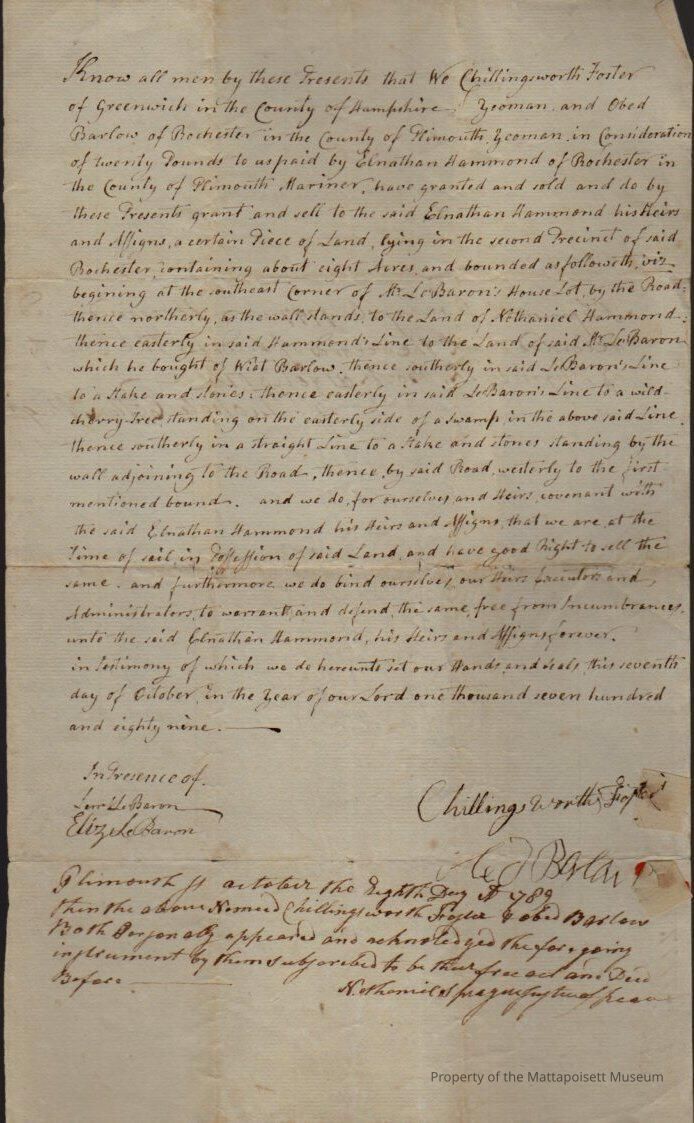 Know all men by these Presents that We Chillingsworth Foster
of Greenwich in the County of Hampshire, Yeoman, and Obed
Barlow of Rochester in the County of Plimouth, Yeoman, in Consideration
of twenty Pounds to us paid by Elnathan Hammond of Rochester in
the County of Plimouth Mariner, have granted and sold and do by
these Presents grant and sell to the said Elnathan Hammond his Heirs
and Assigns, a certain Piece of Land, lying in the second Precinct of said
Rochester, containing about eight Acres, and bounded as followeth, viz
begining at the southeast Corner of Mr. LeBaron's House Lot, by the Road;
thence northerly, as the wall stands, to the Land of Nathaniel Hammond;
thence easterly in said Hammond's Line to the Land of said Mr. LeBaron
which he bought of Wiat Barlow; thence southerly in said LeBaron's Line
to a Stake and stones; thence easterly in said LeBaron's Line to a wild-
cherry-Tree standing on the easterly side of a swamp in the above said Line
thence southerly in a straight Line to a Stake and stones standing by the
wall adjoining to the Road, thence, by said Road, westerly to the first
mentioned bound. and we do, for ourselves and Heirs, covenant with
the said Elnathan Hammond his Heirs and Assigns, that we are, at the
Time of sail, in Possession of said Land, and have good Right to sell the
same. and furthermore we do bind ourselves, our Heirs Executors and
Administrators, to warrant, and defend, the same, free from Incumbrances,
unto the said Elnathan Hammond, his Heirs and Assigns forever.
in Testimony of which we do hereunto set our Hands and Seals, this seventh
day of October, in the Year of our Lord one thousand seven hundred
and eighty nine.
In Presence of
Lemll LeBaron
Eliz LeBaron
Chillingsworth Foster
Obed Barlow
Plimouth ss october the Eighth Day AD 1789
then the above Named Chillingsworth Foster & obed Barlow
Both Personally appeared and acknowledged the fore going
instrument by them subscribed to be their free act and Deed
Before
Nathaniel Sprague Justice of Peace
Property of the Mattapoisett Museum